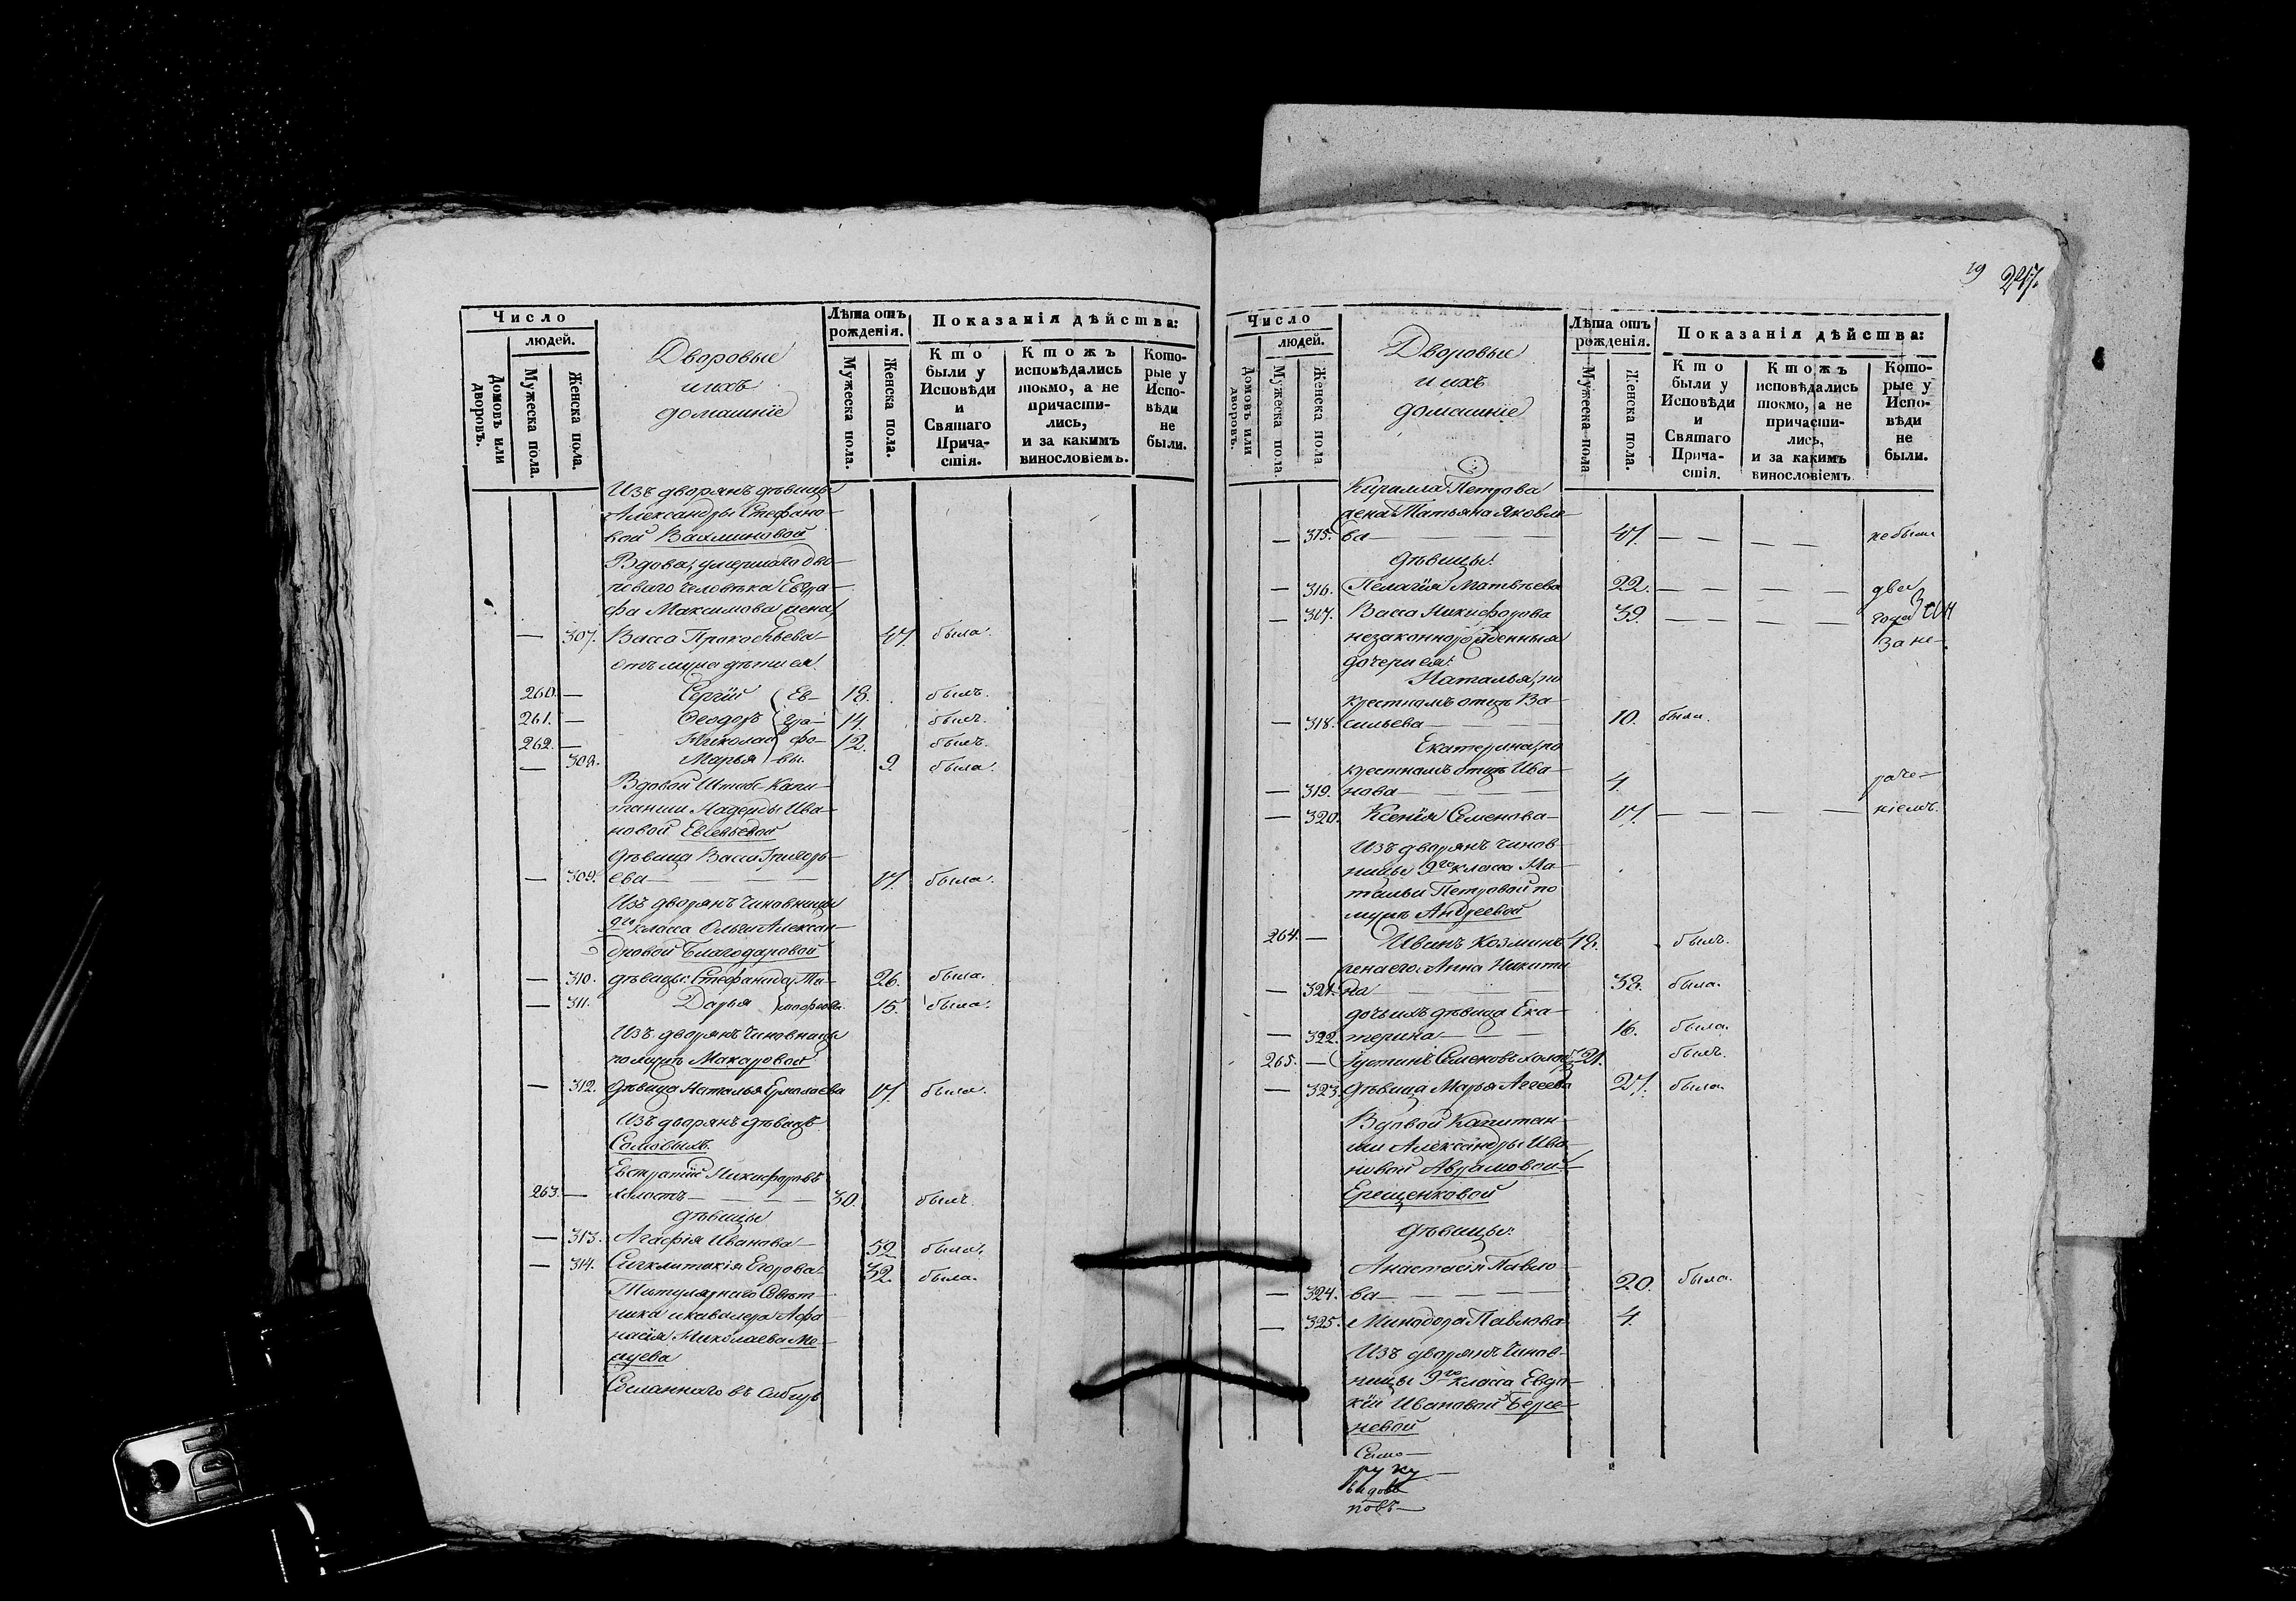 19 247.
Число
людей.
Домовъ или дворовъ.
Мужеска пола.
Женска пола.
Дворовые
и ихъ
домашніе
Лѣта отъ рожденія.
Мужеска пола.
Женска пола.
Показанія дѣйства:
Кто были у Исповѣди и Святаго Прича-стія.
Ктожъ исповѣдались токмо, а не причасти-лись, и за какимъ винословіемъ.
Кото-рые у Испо-вѣди не были.
Изъ дворянъ дѣвицы
Александры Стефано-
вой Вахминовой
Вдова, умершаго дво-
роваго человѣка Евгра-
фа Максимова жена
— 307. Васса Прокофьева— 47. была.
отъ мужа дѣти ея
260. — Сергій Ев- 18. былъ.
261. — Феодоръ гра- 14. былъ.
262. — Николай фо- 12. былъ.
— 308. Марья вы. 9. была.
Вдовой Штабс-Капи-
танши Надежды Ива-
новой
Дѣвица Васса Григорь-
— 309. ева— 17. была.
Изъ дворянъ чиновницы
9го класса Ольги Алексан-
дровой Благодаровой
— 310. дѣвицы: Стефанида Ти- 26. была.
— 311. Дарья мофеевы. 15. была.
Изъ дворянъ чиновницы
по мужѣ Макаровой
— 312. Дѣвица Наталья Ермолаева 17. была.
Изъ дворянъ дѣвицъ
Сомовыхъ.
Евстратій Никифоровъ
263. — холостъ— 30. былъ.
дѣвицы
— 313. Агафія Иванова— 52. была.
— 314. Сигклитикія Егорова— 32. была.
Титулярнаго Совѣт-
ника и кавалера Афа
насія Николаева Ме-
Сосланнаго въ Сибирь
Число
людей.
Домовъ или дворовъ.
Мужеска пола
Женска пола
Дворовые
и ихъ
домашніе
Лѣта отъ рожденія.
Мужеска пола
Женска пола.
Показанія дѣйства:
Кто были у Исповѣди и Святаго Прича-стія.
Ктожъ исповѣдались токмо, а не причасти-лись, и за какимъ винословіемъ
Кото-рые у Испо-вѣди не были.
Кирилла Петрова
жена Татьяна Яковле-
— 315. ва— 47. — — — — не были
Дѣвицы:
— 316. Пелагія Матвѣева 22. — — — — две
— 317. Васса Никифорова 39. — — — — года
незаконнорожденныя За не-
дочери ея:
Наталья, по
крестномъ отцѣ Ва-
— 318. сильева— 10. была.
Екатерина, по
крестномъ отцѣ Ива-
— 319. нова— 4. раче-
— 320. Ксенія Семенова— 17. — — — — ніемъ.
Изъ дворянъ чинов-
ницы 9го класса На-
тальи Петровой по
мужѣ Андреевой
264. — Иванъ Козминъ 48. былъ.
жена его Анна Никити
— 321. на 38. была.
дочь ихъ дѣвица Ека-
— 322. терина— 16. была.
265. — Іустинъ Семеновъ холостъ 21. былъ.
— 323. Дѣвица Марья Агеева 27. была.
Вдовой Капитан-
ши Александры Ива-
новой Аврамовой—
Ерещенковой
Дѣвицы:
Анастасія Павло-
— 324. ва— 20. была.
— 325. Минодора Павлова 4.
Изъ дворянъ чинов-
ницы 9го класса Евдо-
кіи Ивановой Берсе-
невой
ру ку